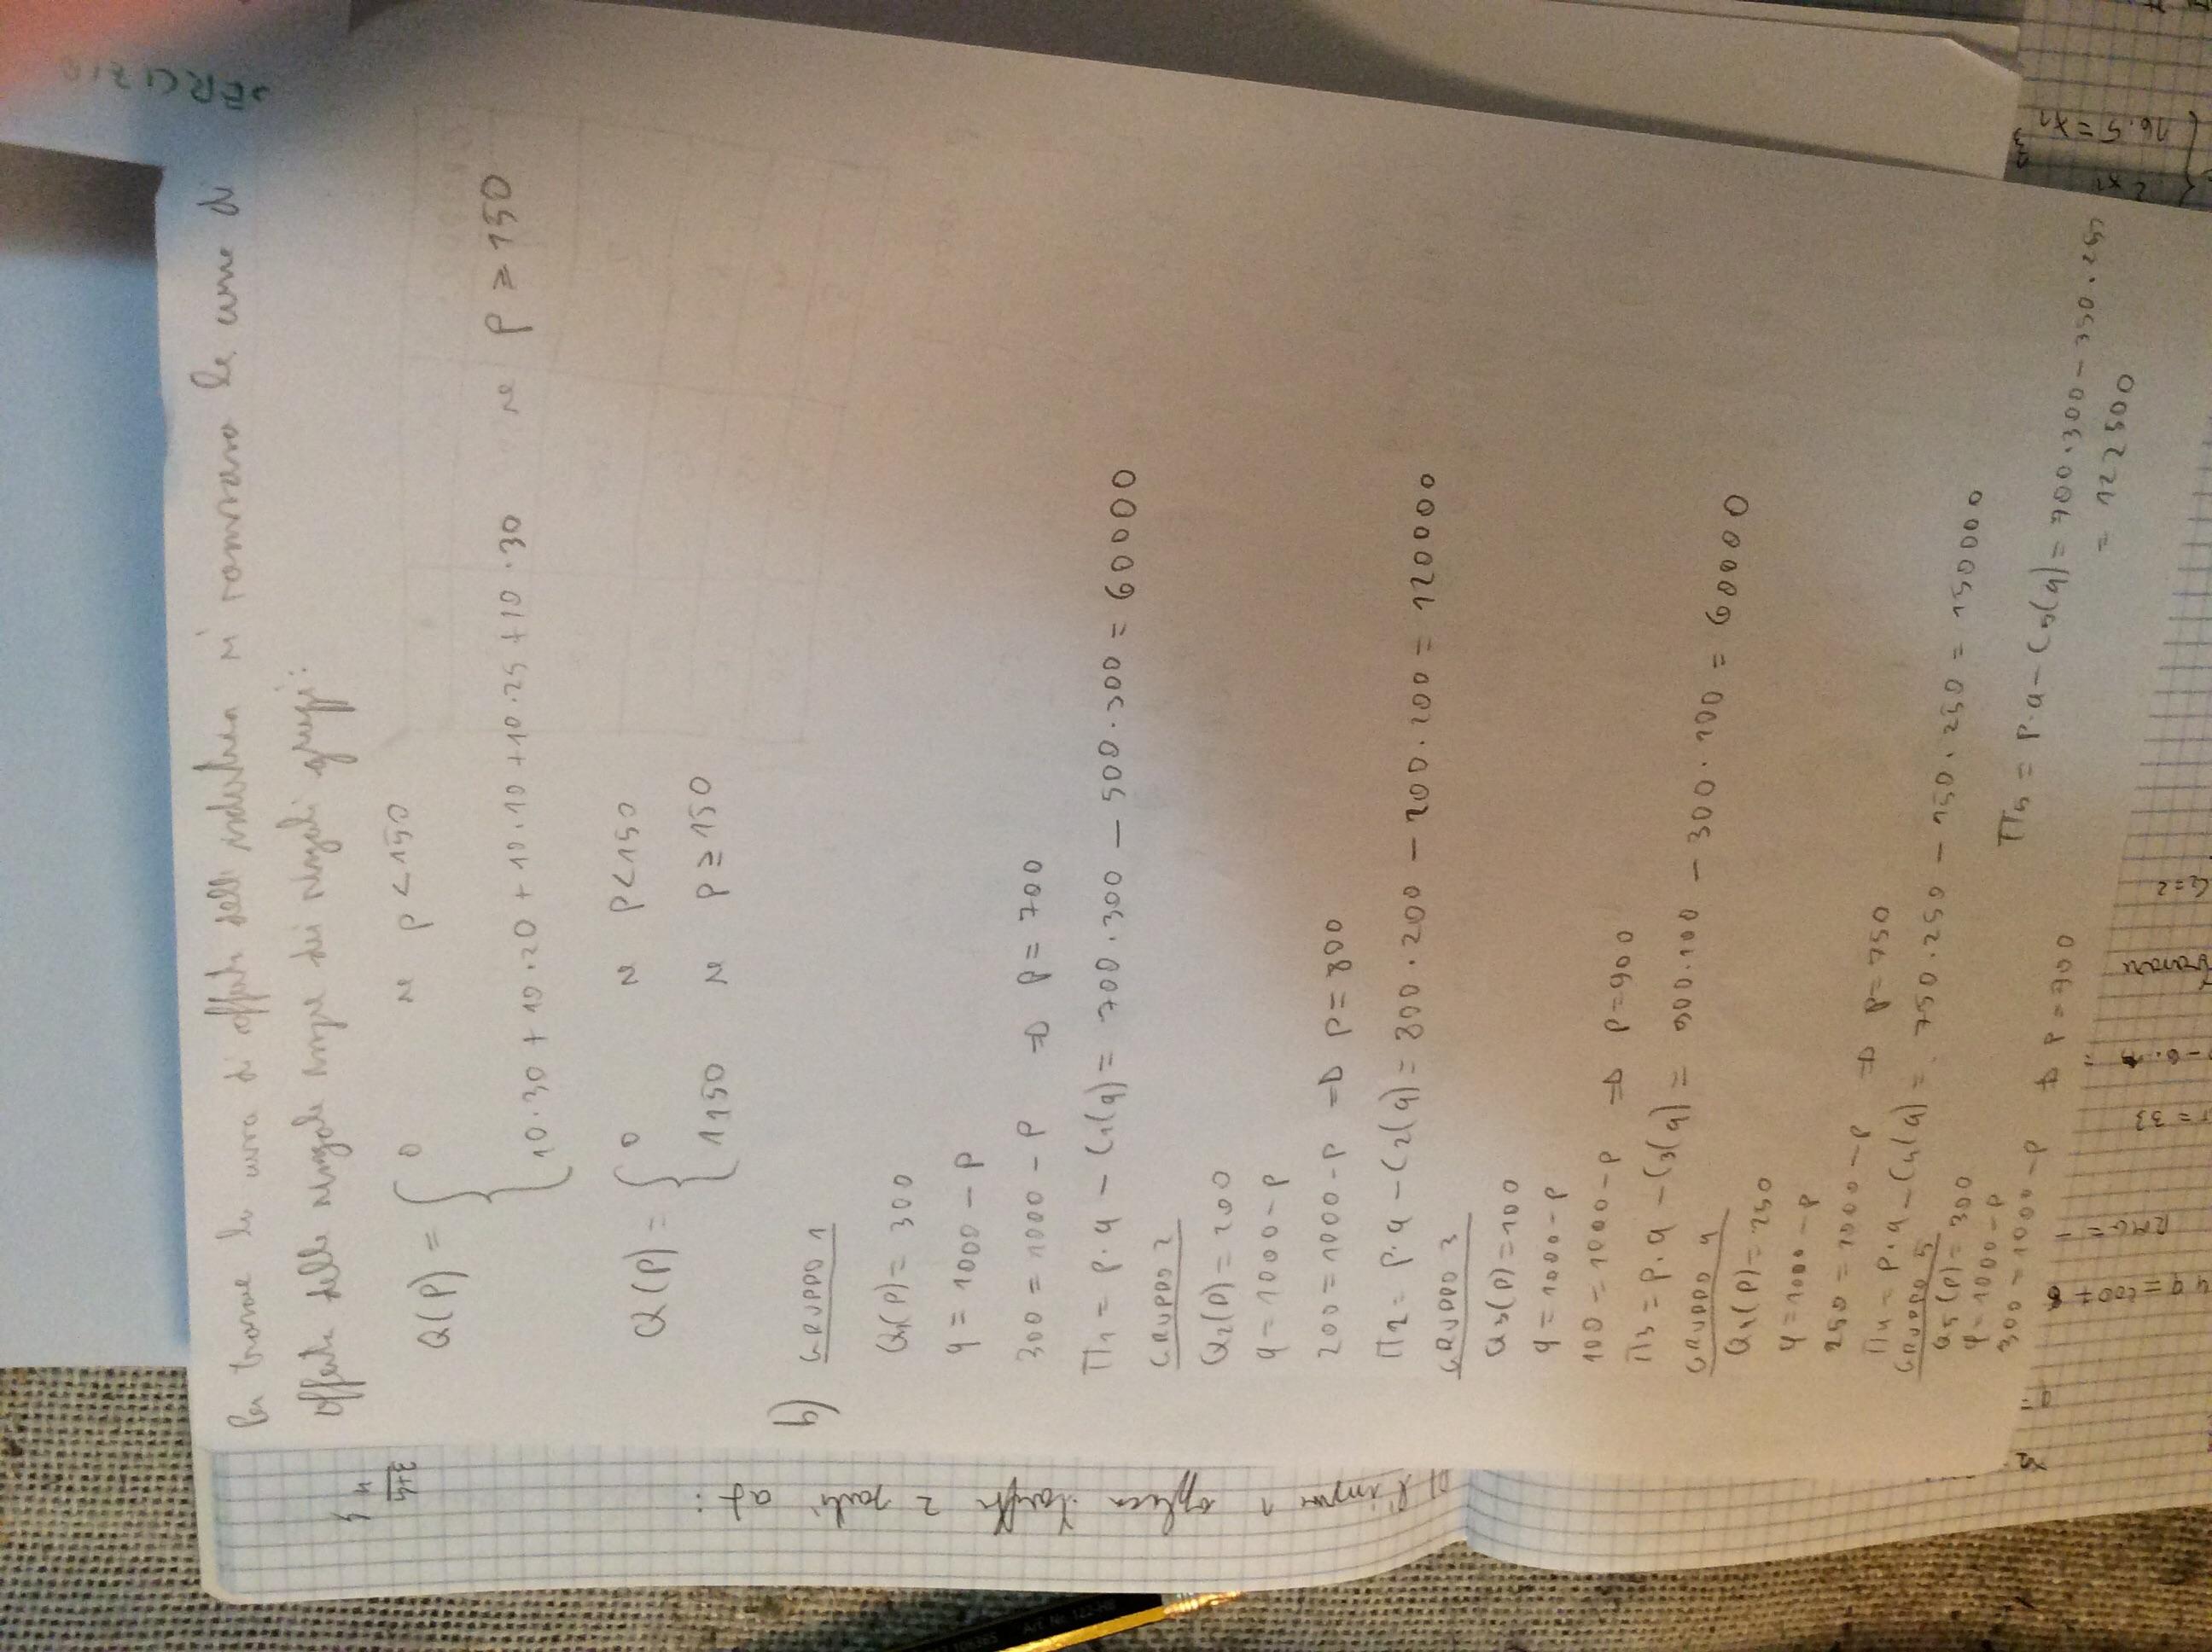 Per trovare la curva di offerta dell'industria si sommano le curve di
offerta delle singole imprese dei singoli gruppi:
Q(P) = { 0 se p < 150
10·30 + 10·20 + 10·10 + 10·25 + 10·30 se p ≥ 150
Q(P) = { 0 se p < 150
1150 se p ≥ 150
b) GRUPPO 1
Q1(P) = 300
q = 1000 - p
300 = 1000 - p ⇒ p = 700
Π1 = p·q - C1(q) = 700·300 - 500·300 = 60000
GRUPPO 2
Q2(P) = 200
q = 1000 - p
200 = 1000 - p ⇒ p = 800
Π2 = p·q - C2(q) = 800·200 - 200·200 = 120000
GRUPPO 3
Q3(P) = 100
q = 1000 - p
100 = 1000 - p ⇒ p = 900
Π3 = p·q - C3(q) = 900·100 - 300·100 = 60000
GRUPPO 4
Q4(P) = 250
q = 1000 - p
250 = 1000 - p ⇒ p = 750
Π4 = p·q - C4(q) = 750·250 - 150·250 = 150000
GRUPPO 5
Q5(P) = 300
q = 1000 - p
300 = 1000 - p ⇒ p = 700
Π5 = p·q - C5(q) = 700·300 - 350·250
= 122500
l'impresa 1 applica tariffe 2 parti
16.5 = x1